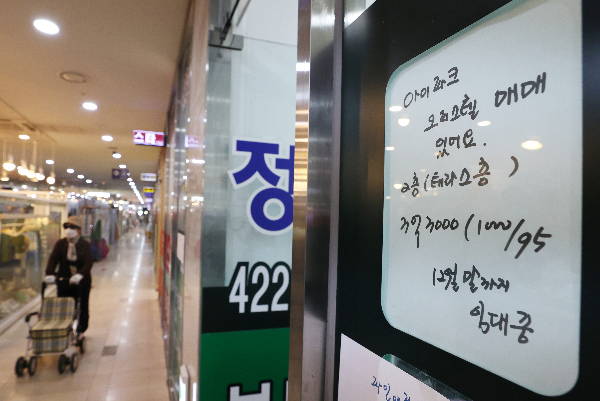 정
422
스타
아이파크
오피스텔 매매
있어요.
2층 (테라스층)
3억3000 (1000/95
12월말까지
임대중